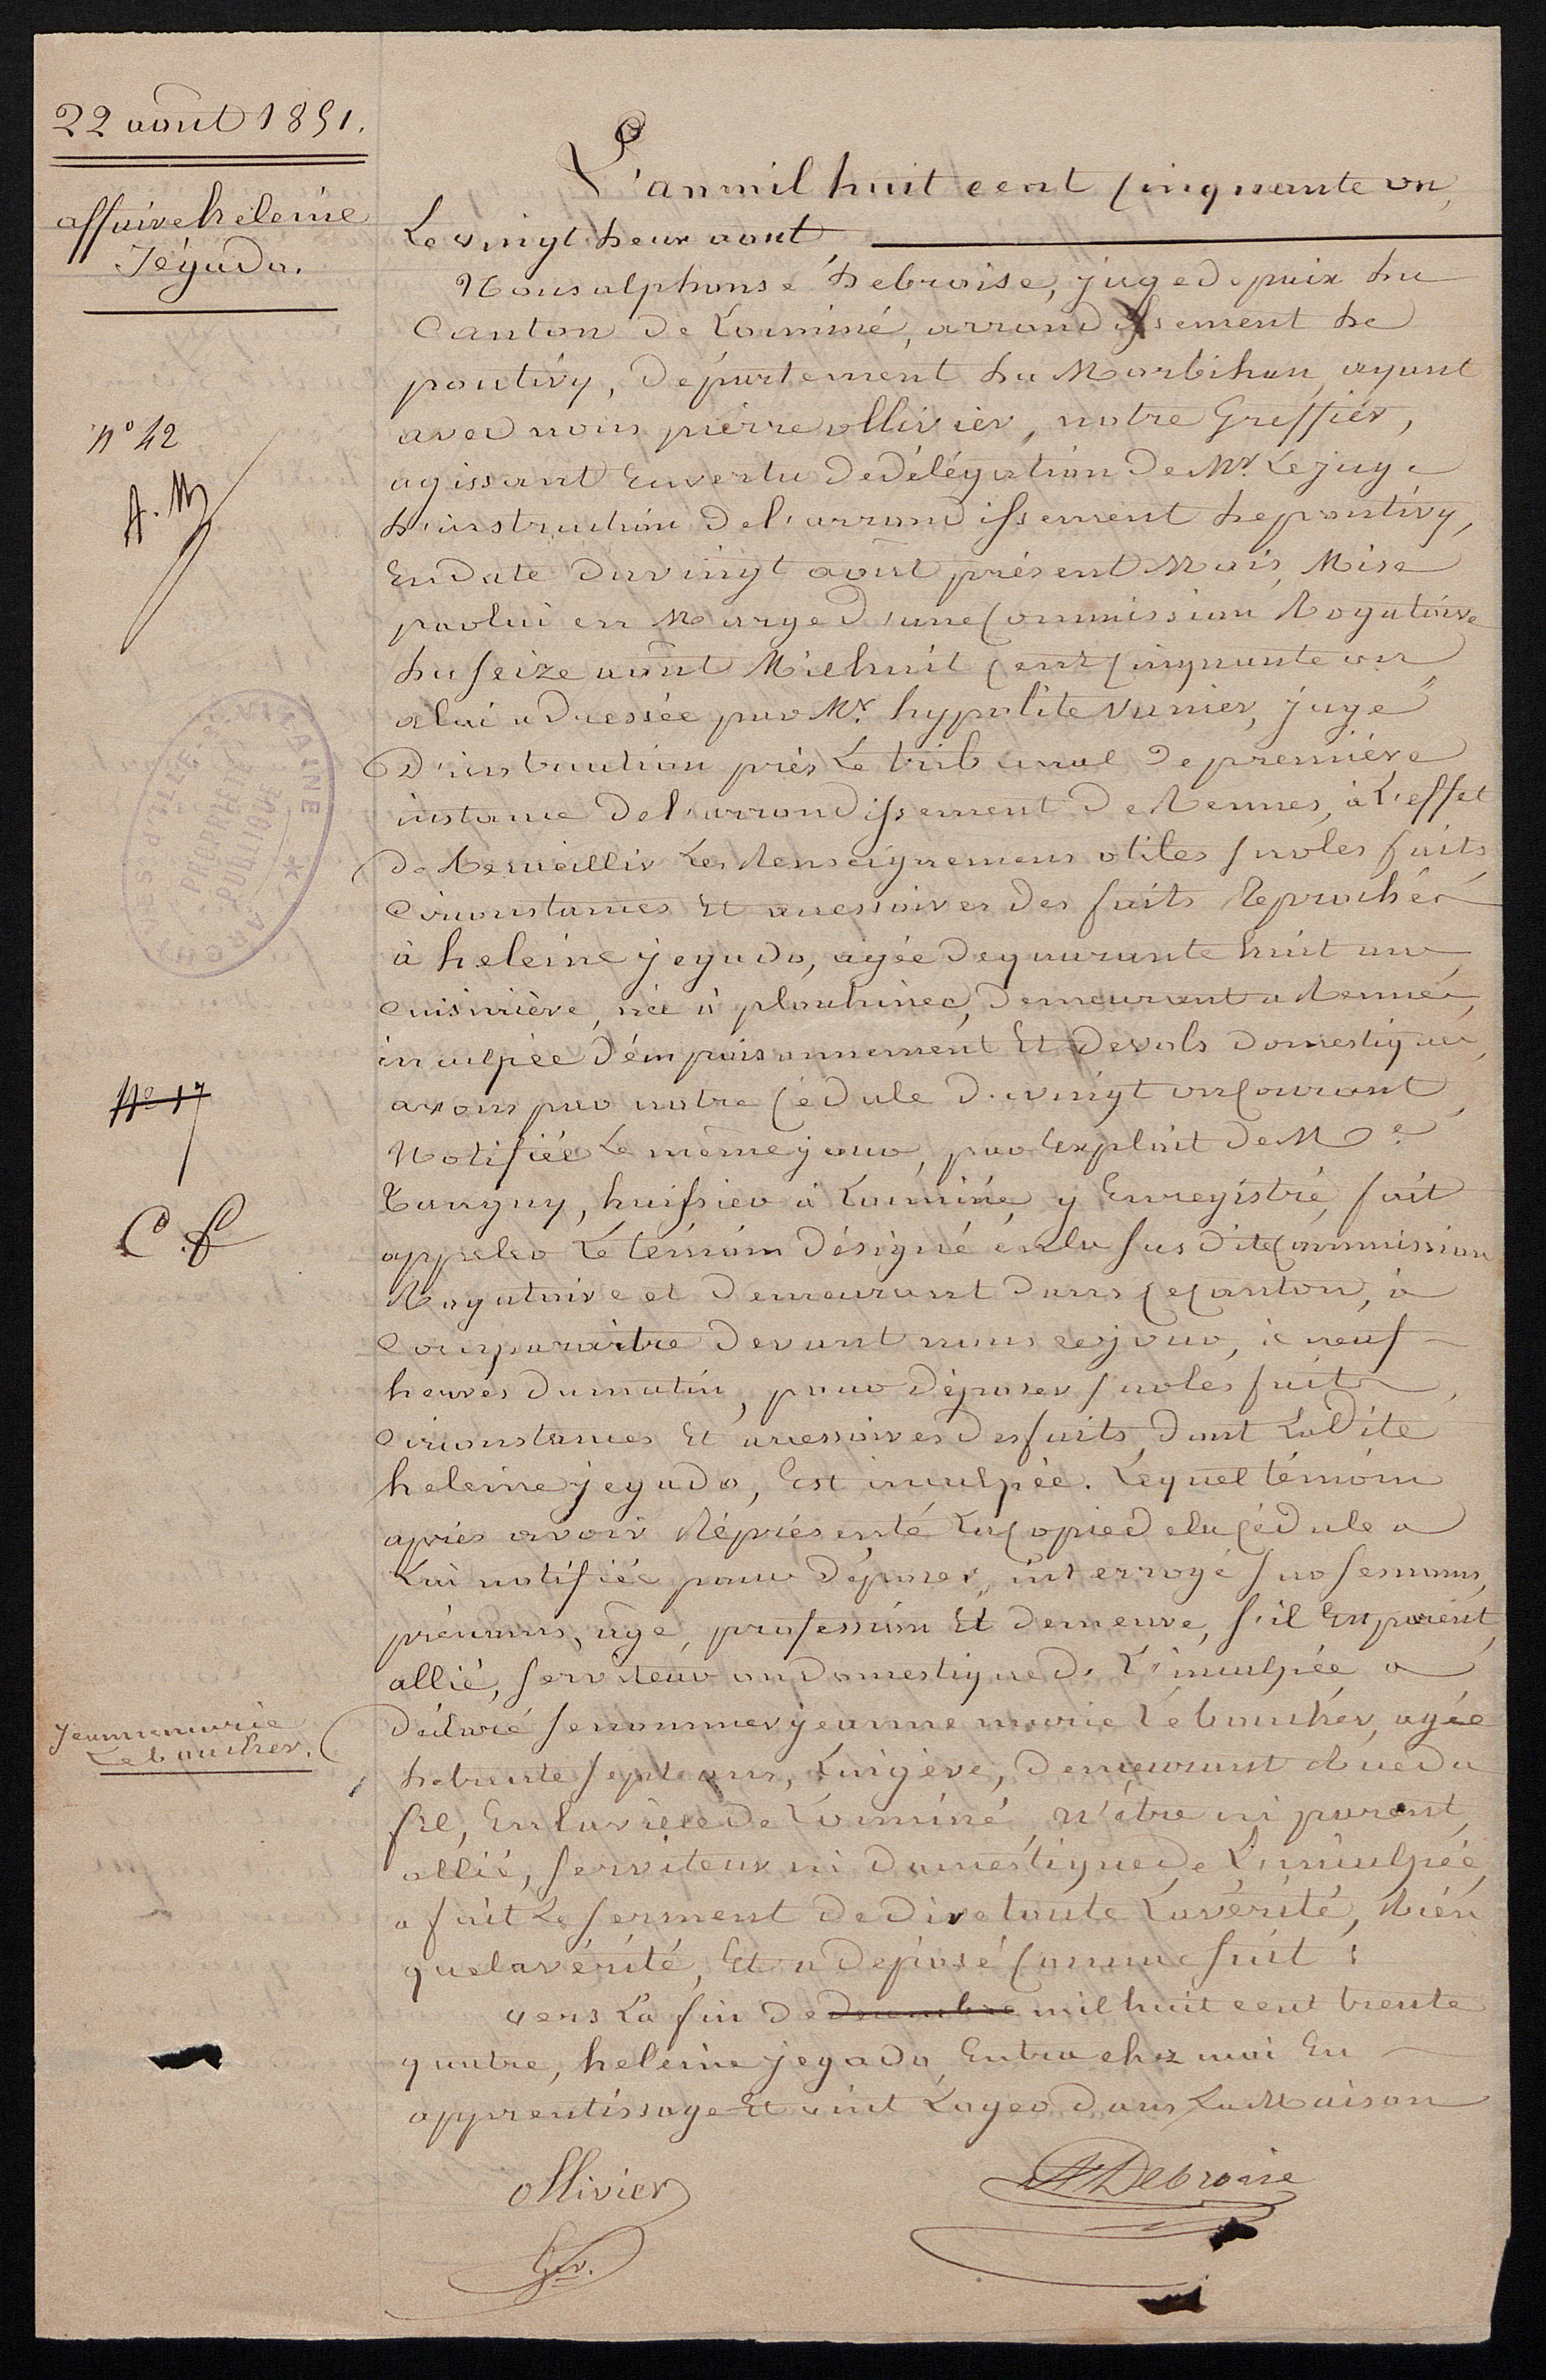 22 aout 1851.
affaire heleine
Jégado.
n° 42
A. M
ARCHIVES D'ILLE-&-VILAINE
PROPRIÉTÉ
PUBLIQUE
N° 17
C. f
Jeanne marie
Leboucher.
L'an mil huit cent cinquante un,
Le vingt deux aout
Nous alphonse Debroise, juge de paix du
Canton de Locminé, arrondissement de
pontivy, département du Morbihan, ayant
avec nous pierre ollivier, notre Greffier,
agissant En vertu de délégation de Mr. Le juge
d'instruction de l'arrondissement de pontivy,
En date du vingt aout présent Mois, Mise
par lui en Marge d'une Commission Rogatoire
du seize août Mil huit Cent Cinquante un,
a lui adressée par Mr. hypolite vanier, juge
D'instruction près Le tribunal de première
instance de l'arrondissement de Rennes, à L'effet
de Recueillir Les Renseignemens utiles sur les faits
Circonstances Et accessoires des faits Reprochés
à heleine jegado, agée de quarante huit ans
Cuisinière, née à plouhinec, demeurant a Rennes,
inculpée d'émpoisonnement Et de vols domestiques,
avons par notre Cédule du vingt un Courant,
Notifiée Le même jour, par Exploit de Me
Tanguy, huissier à Locminé, y Enregistré, fait
appeler Le témoin désigné én la susdite Commission
Rogatoire et demeurant dans Ce Canton, à
Comparaitre devant nous ce jour, à neuf
heures du matin, pour déposer sur les faits,
Circonstances Et accessoires des faits dont Ladite
heleine jegado, Est inculpée. Lequel témoin
après avoir Réprésenté La Copie de la Cédule a
Lui notifiée pour déposer, interrogé sur ses noms,
prénoms, age, profession Et demeure, s'il Est parent,
allié, serviteur ou domestique de L'inculpée a
déclaré se nommer jeanne marie Leboucher, agée
de trente sept ans, Lingère, demeurant Rue du
fil, En la ville de Locminé, n'être ni parent,
allié, serviteur ni domestique de L'inculpée,
a fait Le serment de dire toute La vérité, Rien
que la vérité, Et a déposé Comme suit :
vers La fin de decembre mil huit cent trente
quatre, heleine jegado Entra chez moi En
apprentissage Et vint Loger dans La Maison
ollivier ADebroise
Gier.